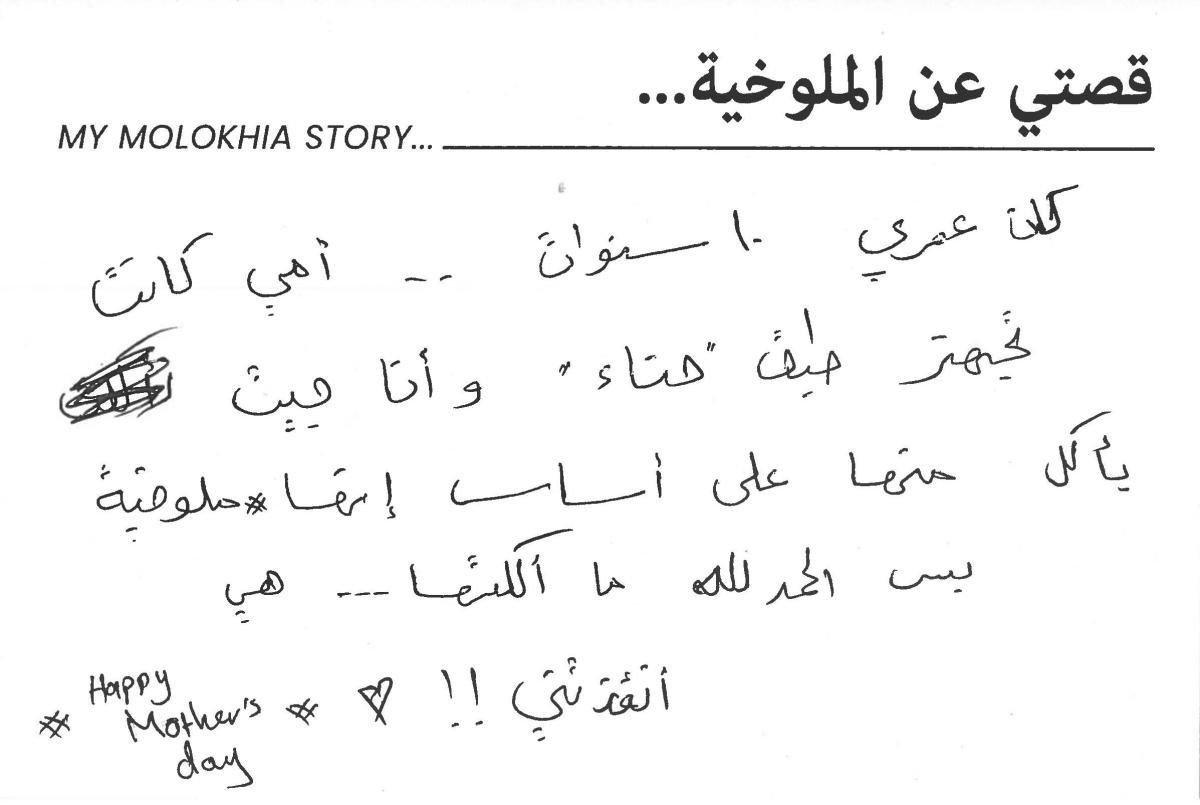 قصتي عن الملوخية...
MY MOLOKHIA STORY...
كان عمري ١٠ سنوات --- أمي كانت
تجهز طبق "حناء" و أنا جيت
يأكل منها على أساس إنها *ملوخية
بس الحمدلله ما أكلتها --- هي
أنقذتني !! ♡ * Happy Mother's day *